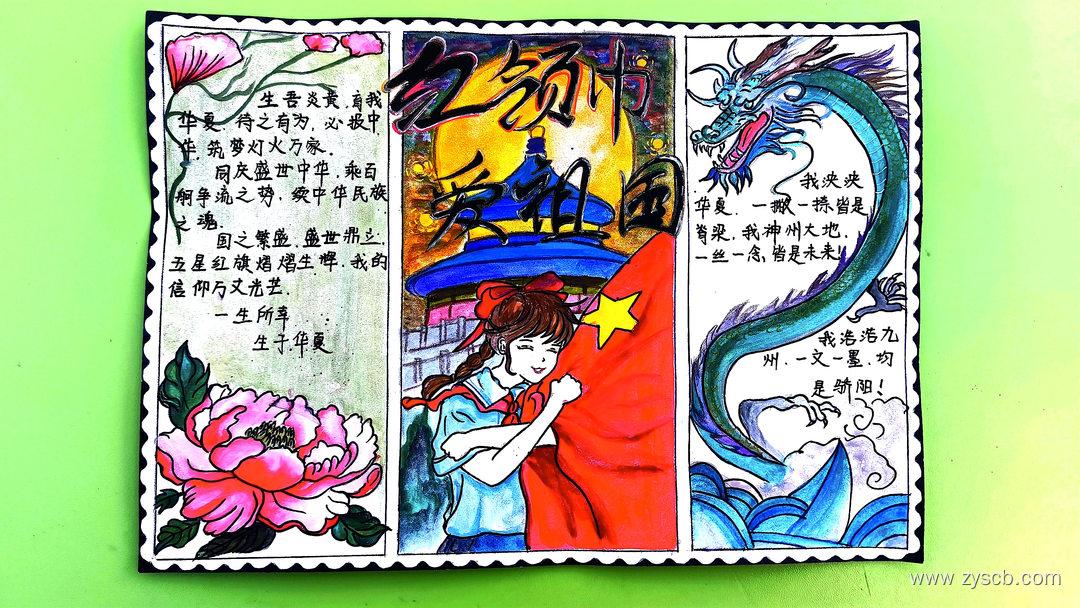 红领巾
爱祖国
生吾炎黄,育我
华夏,待之有为,必报中
华,筑梦灯火万家.
同庆盛世中华,乘百
舸争流之势,续中华民族
之魂.
国之繁盛,盛世鼎立,
五星红旗熠熠生辉,我的
信仰与丈光芒.
一生所幸
生于华夏
我泱泱
华夏,一撇一捺皆是
脊梁,我神州大地,
一丝一念,皆是未来!
我浩浩九
州,一文一墨,均
是骄阳!
www.zyscb.com